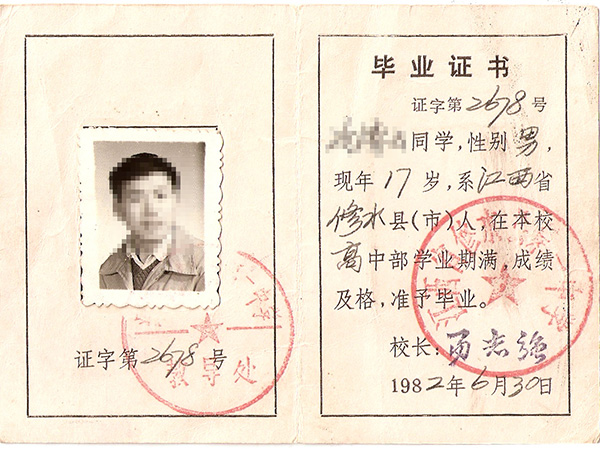 证字第2678号
教导处
毕业证书
证字第2678号
同学,性别男,
现年17岁,系江西省
修水县(市)人,在本校
高中部学业期满,成绩
及格,准予毕业。
校长:
1982年6月30日